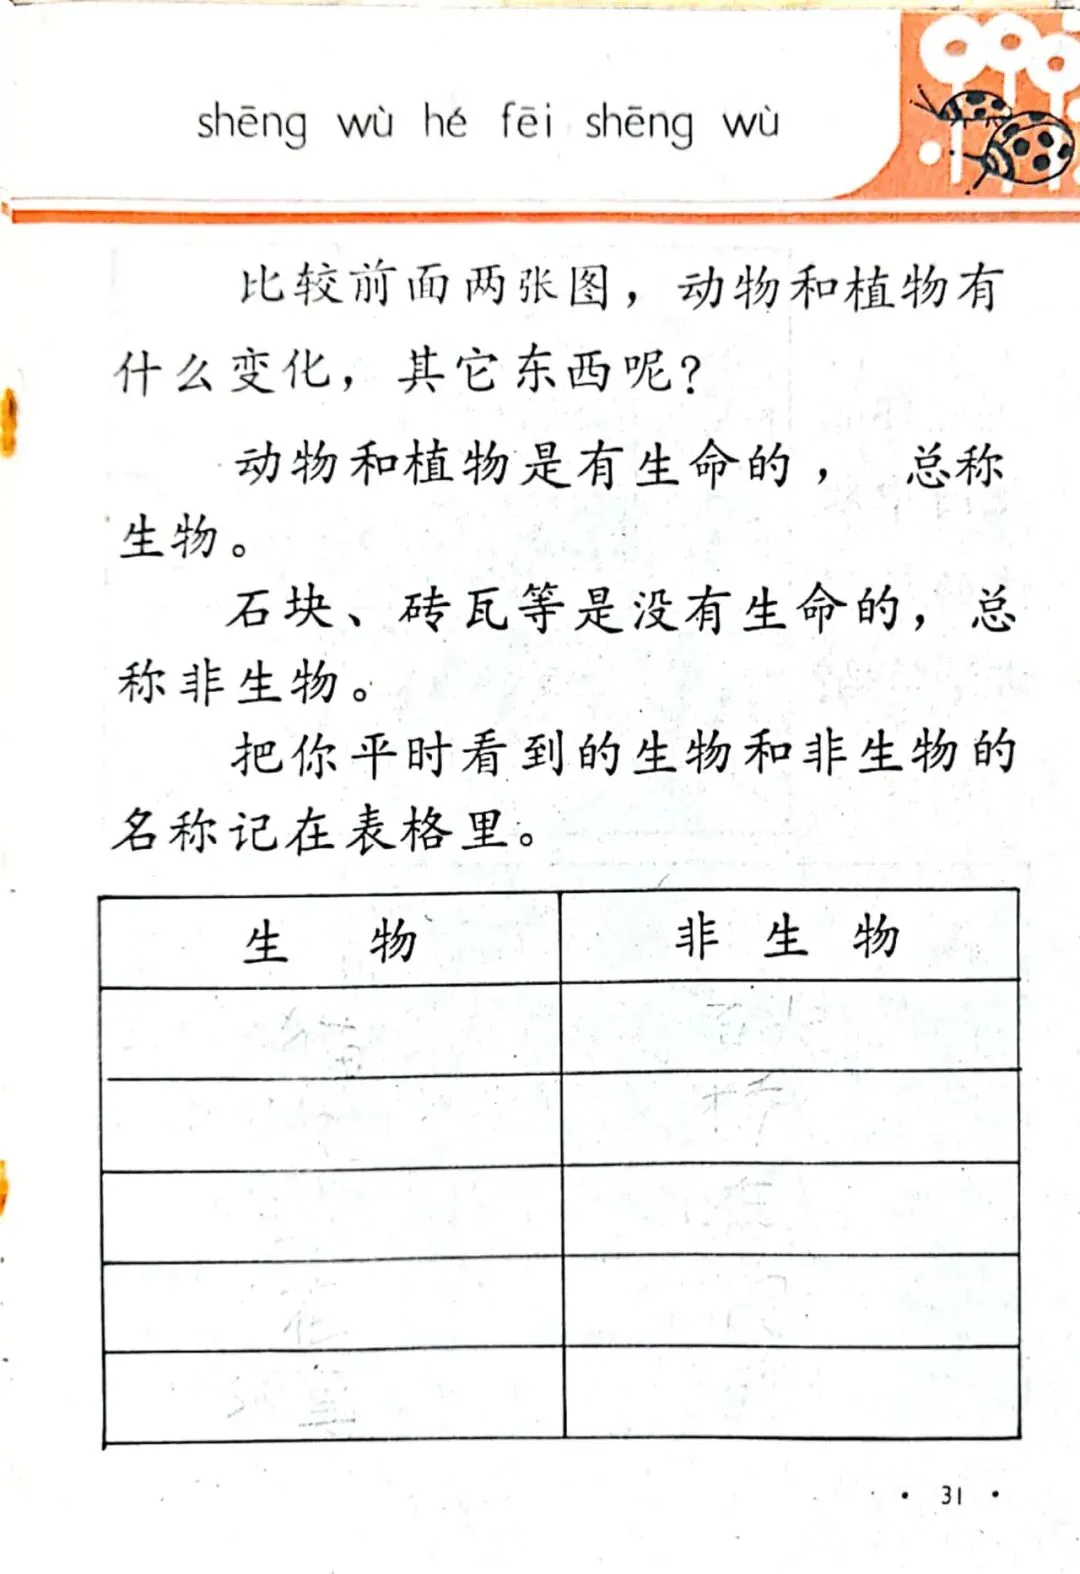 shēng wù hé fēi shēng wù
比较前面两张图，动物和植物有
什么变化，其它东西呢？
动物和植物是有生命的，总称
生物。
石块、砖瓦等是没有生命的，总
称非生物。
把你平时看到的生物和非生物的
名称记在表格里。
生 物
非 生 物
花
· 31 ·